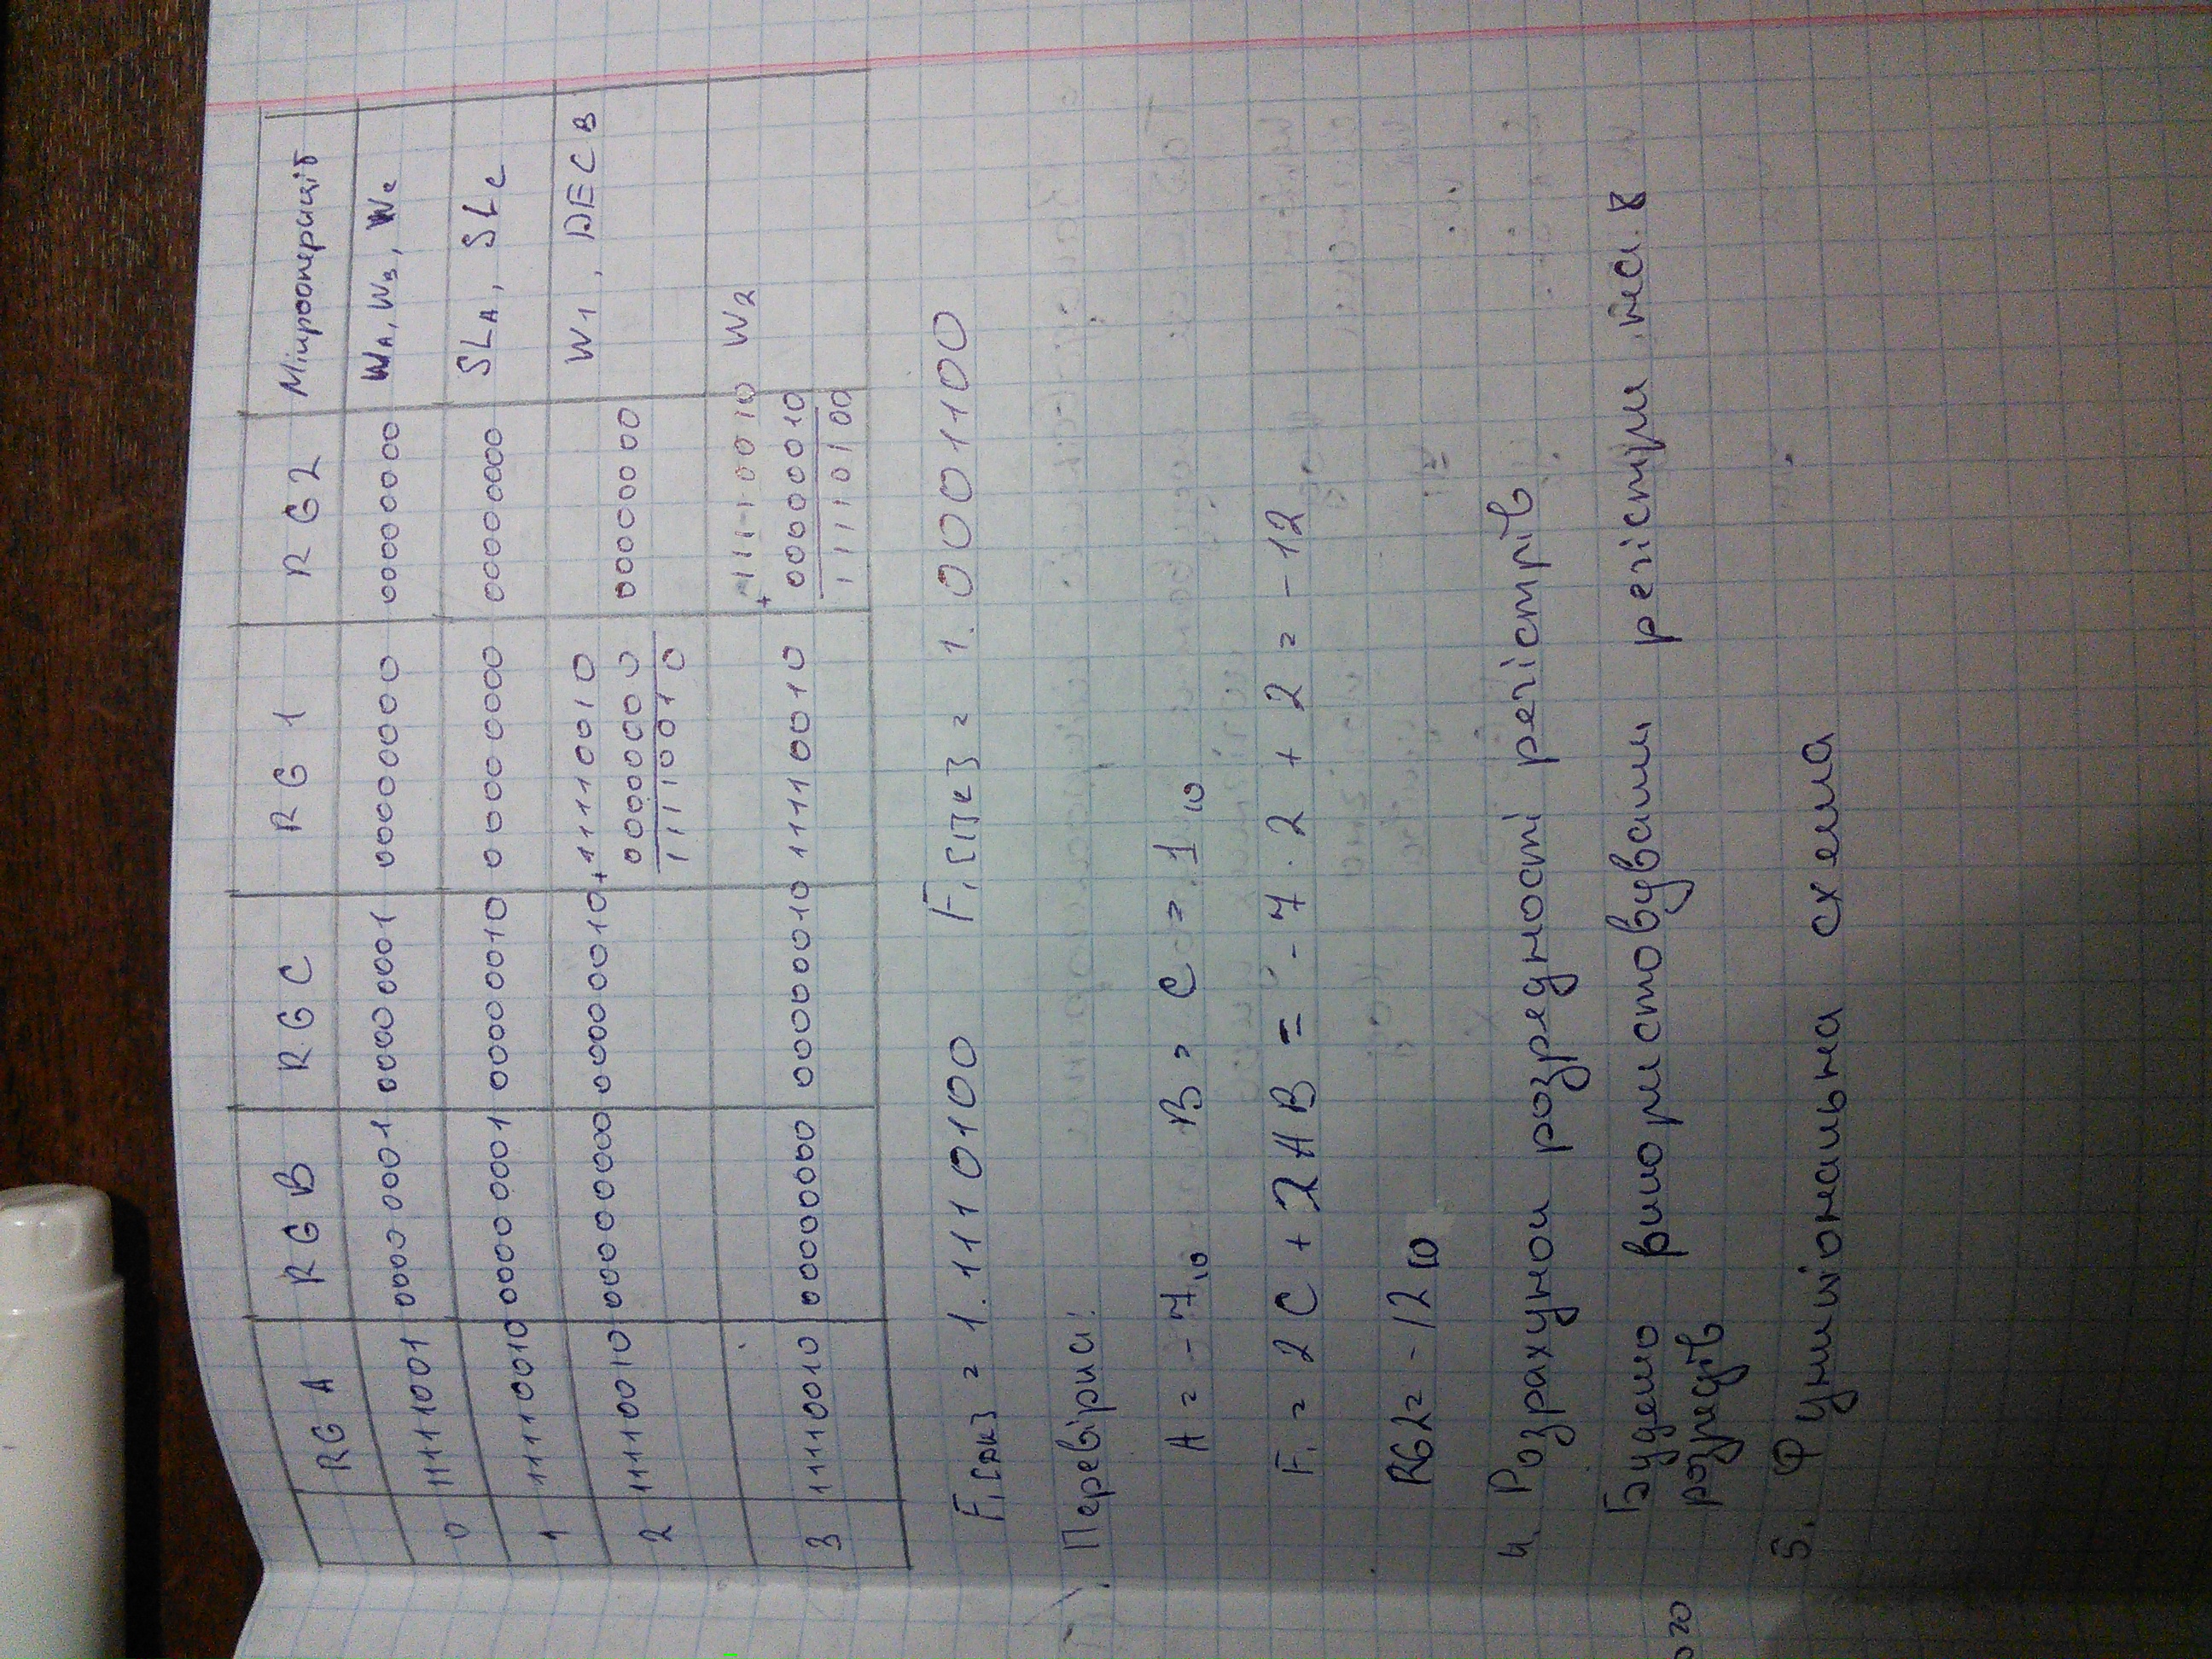 RG A RG B RG C RG 1 RG 2 Мікрооперації
0 11111001 00000001 00000001 00000000 00000000 WA, WB, WC
1 11110010 00000001 00000010 00000000 00000000 SLA, SLC
2 11110010 00000000 00000010 + 11110010 W1, DECB
00000000 00000000
11110010
+ 11110010 W2
3 11110010 00000000 00000010 11110010 00000010
11110100
F1[дк] = 1.1110100 F1[пк] = 1.0001100
Перевірка:
A = -7₁₀ B = C = 1₁₀
F1 = 2C + 2AB = -7·2 + 2 = -12
RG2 = -12₁₀
4. Розрахунок розрядності регістрів
Будемо використовувати регістри на 8
розрядів
5. Функціональна схема